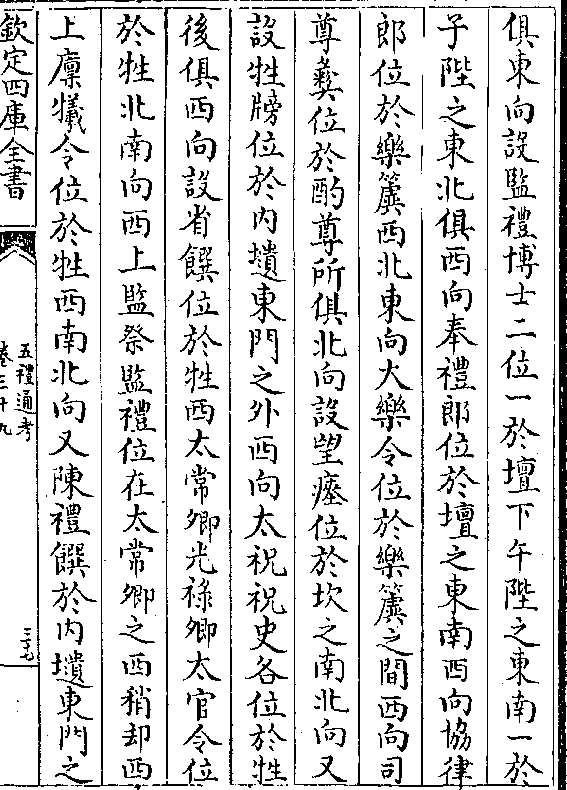 俱東向設監禮博士二位一於壇下午陛之東南一於
子陛之東北俱西向奉禮郎位於壇之東南西向協律
郎位於樂簴西北東向大樂令位於樂簴之間西向司
尊彝位於酌尊所俱北向設望瘞位於坎之南北向又
設牲牓位於内壝東門之外西向太祝祝史各位於牲
後俱西向設省饌位於牲西太常卿光禄卿太官令位
於牲北南向西上監祭監禮位在太常卿之西稍却西
上廩犧令位於牲西南北向又陳禮饌於内壝東門之
欽定四庫全書
五禮通考
卷三十九
三七